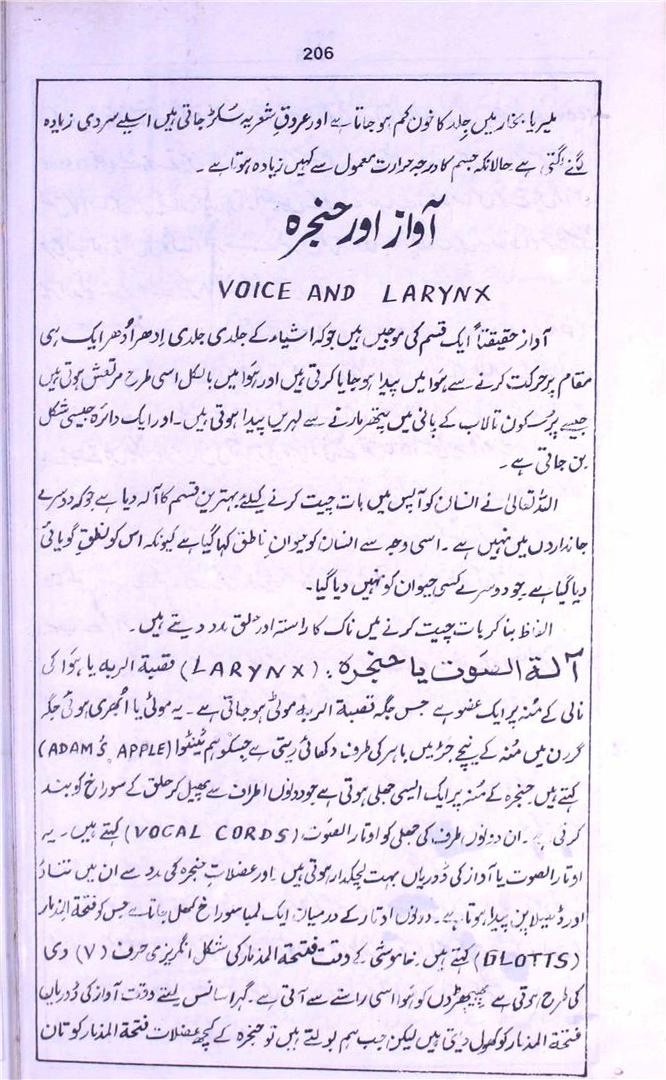 206
ملیریا بخار میں جلد کا خون کم ہو جاتا ہے اور عروق شعریہ سُکڑ جاتی ہیں اسلیے سردی زیادہ
لگنے لگتی ہے حالانکہ جسم کا درجہ حرارت معمول سے کہیں زیادہ ہوتا ہے۔
آواز اور حنجرہ
VOICE AND LARYNX
آواز حقیقتاً ایک قسم کی موجیں ہیں جو کہ اشیاء کے جلدی جلدی اِدھر اُدھر ایک ہی
مقام پر حرکت کرنے سے ہوا میں پیدا ہو جایا کرتی ہیں اور ہوا میں بالکل اسی طرح مرتعش ہوتی ہیں
جیسے پُر سکون تالاب کے پانی میں پتھر مارنے سے لہریں پیدا ہوتی ہیں۔ اور ایک دائرہ جیسی شکل
بن جاتی ہے۔
اللہ تعالیٰ نے انسان کو آپس میں بات چیت کرنے کیلئے بہترین قسم کا آلہ دیا ہے جو کہ دوسرے
جانداروں میں نہیں ہے۔ اسی وجہ سے انسان کو حیوان ناطق کہا گیا ہے کیونکہ اس کو نطق گویائی
دیا گیا ہے جو دوسرے کسی حیوان کو نہیں دیا گیا۔
الفاظ بنا کر بات چیت کرنے میں ناک کا راستہ اور حلق مدد دیتے ہیں۔
آلۃ الصوت یا حنجرہ: (LARYNX) قصبۃ الریہ یا ہوا کی
نالی کے منہ پر ایک عضو ہے جس جگہ قصبۃ الریہ موٹی ہو جاتی ہے۔ یہ موٹی یا اُبھری ہوئی جگہ
گردن میں منہ کے نیچے جڑ میں باہر کی طرف دکھائی دیتی ہے جسکو ہم ٹینٹوا (ADAM'S APPLE)
کہتے ہیں حنجرہ کے منہ پر ایک ایسی جھلی ہوتی ہے جو دونوں اطراف سے پھیل کر حلق کے سوراخ کو بند
کرتی ہے۔ ان دونوں طرف کی جھلی کو اوتار الصوت (VOCAL CORDS) کہتے ہیں۔ یہ
اوتار الصوت یا آواز کی ڈوریاں بہت لچکدار ہوتی ہیں۔ اور عضلات حنجرہ کی مدد سے ان میں تناؤ
اور ڈھیلا پن پیدا ہوتا ہے۔ دونوں اوتار کے درمیان ایک لمبا سوراخ کھل جاتا ہے جس کو فتحۃ المذمار
(GLOTTS) کہتے ہیں۔ خاموشی کے وقت فتحۃ المذمار کی شکل انگریزی حرف (V) وی
کی طرح ہوتی ہے پھیپھڑوں کو ہوا اسی راستے سے آتی ہے۔ گہرا سانس لیتے وقت آواز کی ڈوریاں
فتحۃ المذمار کو کھول دیتی ہیں لیکن جب ہم بولتے ہیں تو حنجرہ کے کچھ عضلات فتحۃ المذمار کو تان